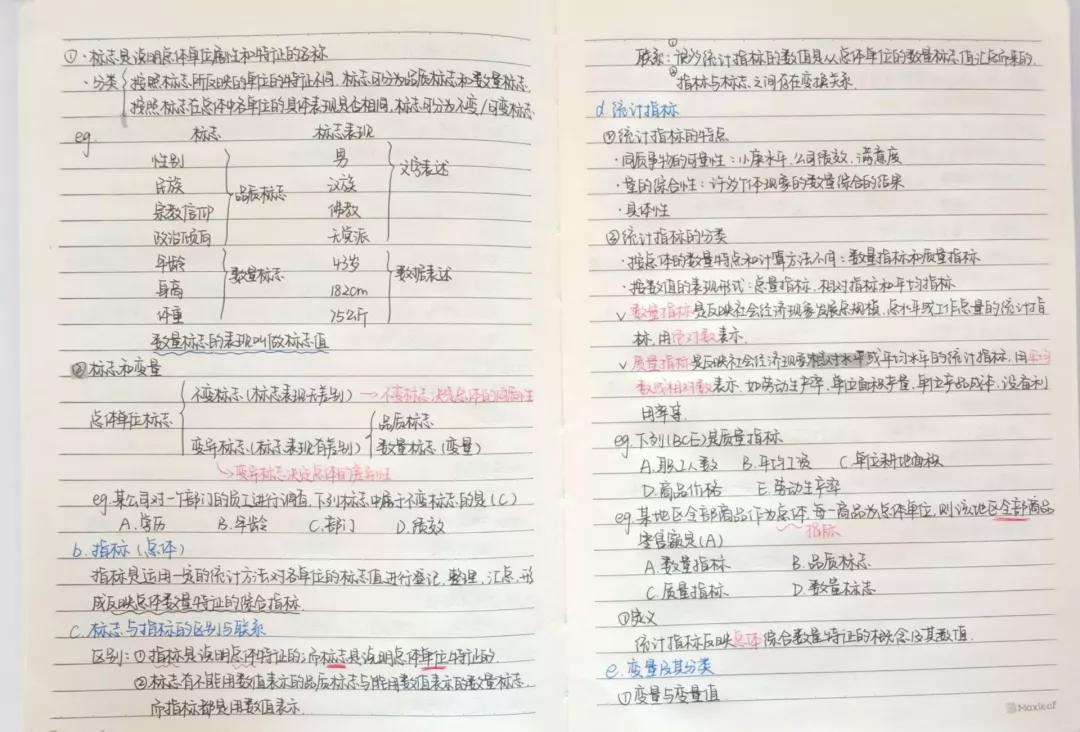 ①·标志是说明总体单位属性和特征的名称
·分类 按照标志所反映的单位的特征不同,标志可分为品质标志和数量标志.
按照标志在总体中各单位的具体表现是否相同,标志可分为不变/可变标志
eg. 标志 标志表现
性别 男
民族 品质标志 汉族 文字表述
宗教信仰 佛教
政治倾向 无党派
年龄 43岁
身高 数量标志 182cm 数据表述
体重 75公斤
数量标志的表现叫做标志值
②标志和变量
不变标志(标志表现无差别) → 不变标志决定总体的同质性
总体单位标志 品质标志
变异标志(标志表现有差别) 数量标志(变量)
↳变异标志决定总体的差异性
eg.某公司对一个部门的员工进行调查,下列标志中属于不变标志的是(C)
A.学历 B.年龄 C.部门 D.绩效
b.指标(总体)
指标是运用一定的统计方法对各单位的标志值进行登记,整理,汇总,形
成反映总体数量特征的综合指标.
c.标志与指标的区别与联系
区别:①指标是说明总体特征的;而标志是说明总体单位特征的.
②标志有不能用数值表示的品质标志与能用数值表示的数量标志,
而指标都是用数值表示.
联系:①许多统计指标的数值是从总体单位的数量标志值汇总而来的.
②指标与标志之间存在变换关系.
d.统计指标
②统计指标的特点
·同质事物的可量性:小康水平,公司绩效,满意度
·量的综合性:许多个体现象的数量综合的结果
·具体性
③统计指标的分类
·按总体的数量特点和计算方法不同:数量指标和质量指标
·按数值的表现形式:总量指标,相对指标和平均指标
√数量指标是反映社会经济现象发展总规模,总水平或工作总量的统计指
标,用绝对数表示.
√质量指标是反映社会经济现象相对水平或平均水平的统计指标,用平均
数或相对数表示.如劳动生产率,单位面积产量,单位产品成本,设备利
用率等.
eg.下列(BCE)是质量指标
A.职工人数 B.平均工资 C.单位耕地面积
D.商品价格 E.劳动生产率
eg.某地区全部商品作为总体,每一商品为总体单位,则该地区全部商品
指标
零售额是(A)
A.数量指标 B.品质标志
C.质量指标 D.数量标志
①定义
统计指标反映总体综合数量特征的概念及其数值.
e.变量及其分类
①变量与变量值
Maxleaf